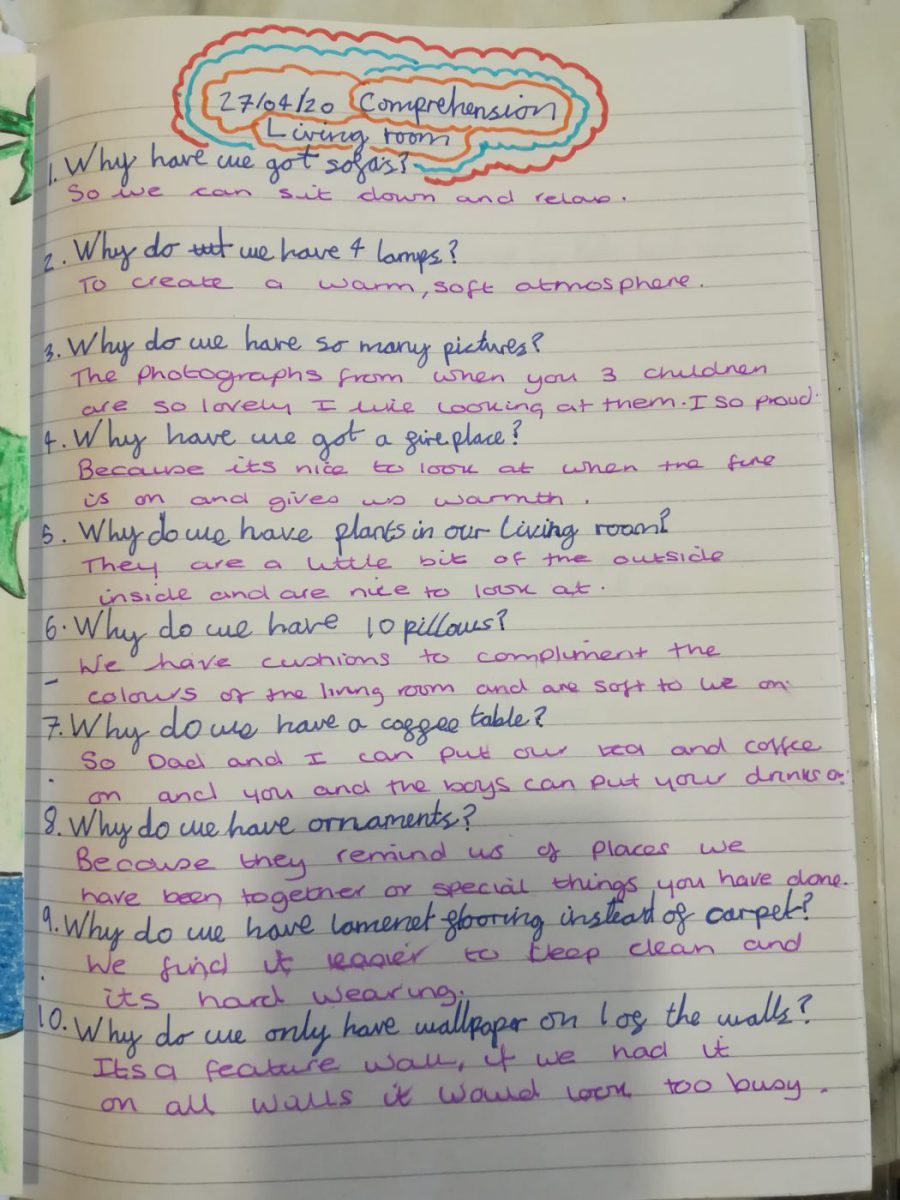 27/04/20 Comprehension
Living room
1. Why have we got sofas?
So we can sit down and relax.
2. Why do we have 4 lamps?
To create a warm, soft atmosphere.
3. Why do we have so many pictures?
The photographs from when you 3 children
are so lovely I like looking at them. I so proud.
4. Why have we got a fireplace?
Because its nice to look at when the fire
is on and gives us warmth.
5. Why do we have plants in our living room?
They are a little bit of the outside
inside and are nice to look at.
6. Why do we have 10 pillows?
We have cushions to compliment the
colours of the living room and are soft to lie on.
7. Why do we have a coffee table?
So Dad and I can put our tea and coffee
on and you and the boys can put your drinks on.
8. Why do we have ornaments?
Because they remind us of places we
have been together or special things you have done.
9. Why do we have lamenet flooring instead of carpet?
We find it easier to keep clean and
its hard wearing.
10. Why do we only have wallpaper on 1 of the walls?
Its a feature wall, if we had it
on all walls it would look too busy.